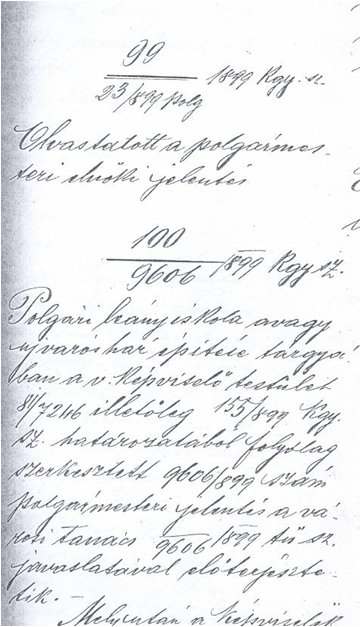 99
23/899 polg 1899 Kgy. sz.
Olvastatott a polgármes-
teri elnöki jelentés
100
9606 1899 Kgy sz.
Polgári leány iskola avagy
uj városház építése tárgyá-
ban a v. képviselő testület
81/7246 illetőleg 155/899 Kgy.
sz. határozatából folyólag
szerkesztett 9606/899 szám
polgármesteri jelentés a vá-
rosi tanács 9606/1899 tü sz.
javaslatával előterjeszte-
tik. -
Melyután a képviselők